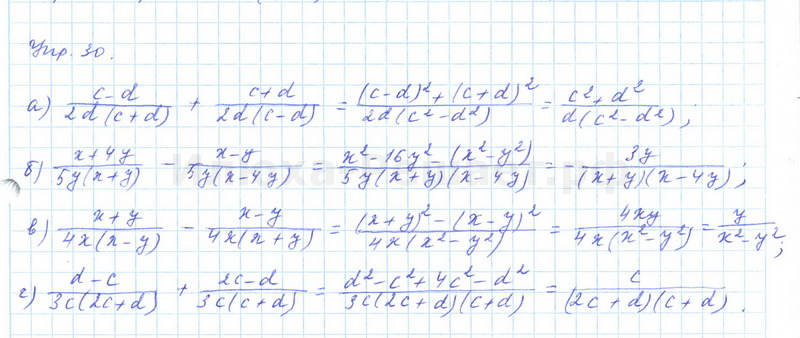 Упр. 30.
а) (c-d)/(2d(c+d)) + (c+d)/(2d(c-d)) = ((c-d)²+(c+d)²)/(2d(c²-d²)) = (c²+d²)/(d(c²-d²));
б) (x+4y)/(5y(x+y)) - (x-y)/(5y(x-4y)) = (x²-16y²-(x²-y²))/(5y(x+y)(x-4y)) = -3y/((x+y)(x-4y));
в) (x+y)/(4x(x-y)) - (x-y)/(4x(x+y)) = ((x+y)²-(x-y)²)/(4x(x²-y²)) = 4xy/(4x(x²-y²)) = y/(x²-y²);
г) (d-c)/(3c(2c+d)) + (2c-d)/(3c(c+d)) = (d²-c²+4c²-d²)/(3c(2c+d)(c+d)) = c/((2c+d)(c+d)).